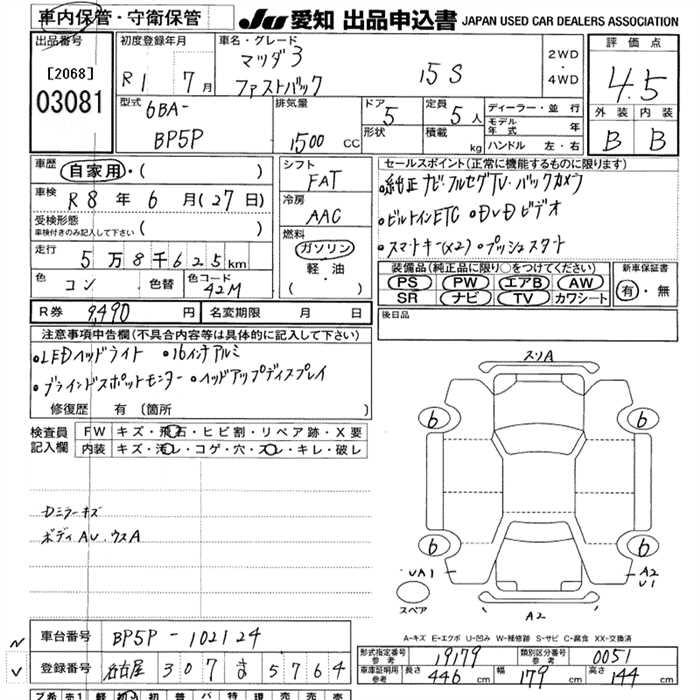 車内保管・守衛保管 JU 愛知 出品申込書 JAPAN USED CAR DEALERS ASSOCIATION
出品番号 [2068] 03081
初度登録年月 R1 7月
車名・グレード マツダ3 ファストバック 15S
2WD・4WD
評価点 4.5
外装 B 内装 B
型式 6BA-BP5P
排気量 1500 CC
ドア 5 形状
定員 5人 積載 kg
ディーラー・並行
モデル年式 年
ハンドル 左・右
車歴 自家用・( )
車検 R8年6月(27日)
受検形態 車検付きのみ記入して下さい ( )
走行 5万8千625km
色 コン 色替 色コード 42M
シフト FAT
冷房 AAC
燃料 ガソリン・軽油・( )
セールスポイント(正常に機能するものに限ります)
•純正ナビ・フルセグTV・バックカメラ
•ビルトインETC •DVDビデオ
•スマートキー(×2) •プッシュスタート
装備品(純正品に限り○をつけてください)
PS PW エアB AW
SR ナビ TV カワシート
新車保証書 有・無
R券 9,490円 名変期限 月 日
後日品
注意事項申告欄(不具合内容等は具体的に記入して下さい)
•LEDヘッドライト •16インチアルミ
•ブラインドスポットモニター •ヘッドアップディスプレイ
修復歴 有 [箇所 ]
検査員記入欄
FW キズ・飛石・ヒビ割・リペア跡・X要
内装 キズ・汚レ・コゲ・穴・スレ・キレ・破レ
Dミラーキズ
ボディAU.ウスA
スリA
6 6
6 6
UA1
スペア
A2
A2
U1
A-キズ E-エクボ U-凹み W-補修跡 S-サビ C-腐食 XX-交換済
車台番号 BP5P-102124
登録番号 名古屋 307 さ 5764
型式指定番号 参考 19179 類別区分番号 参考 0051
車庫証明用 参考 長さ 446cm 幅 179cm 高さ 144cm